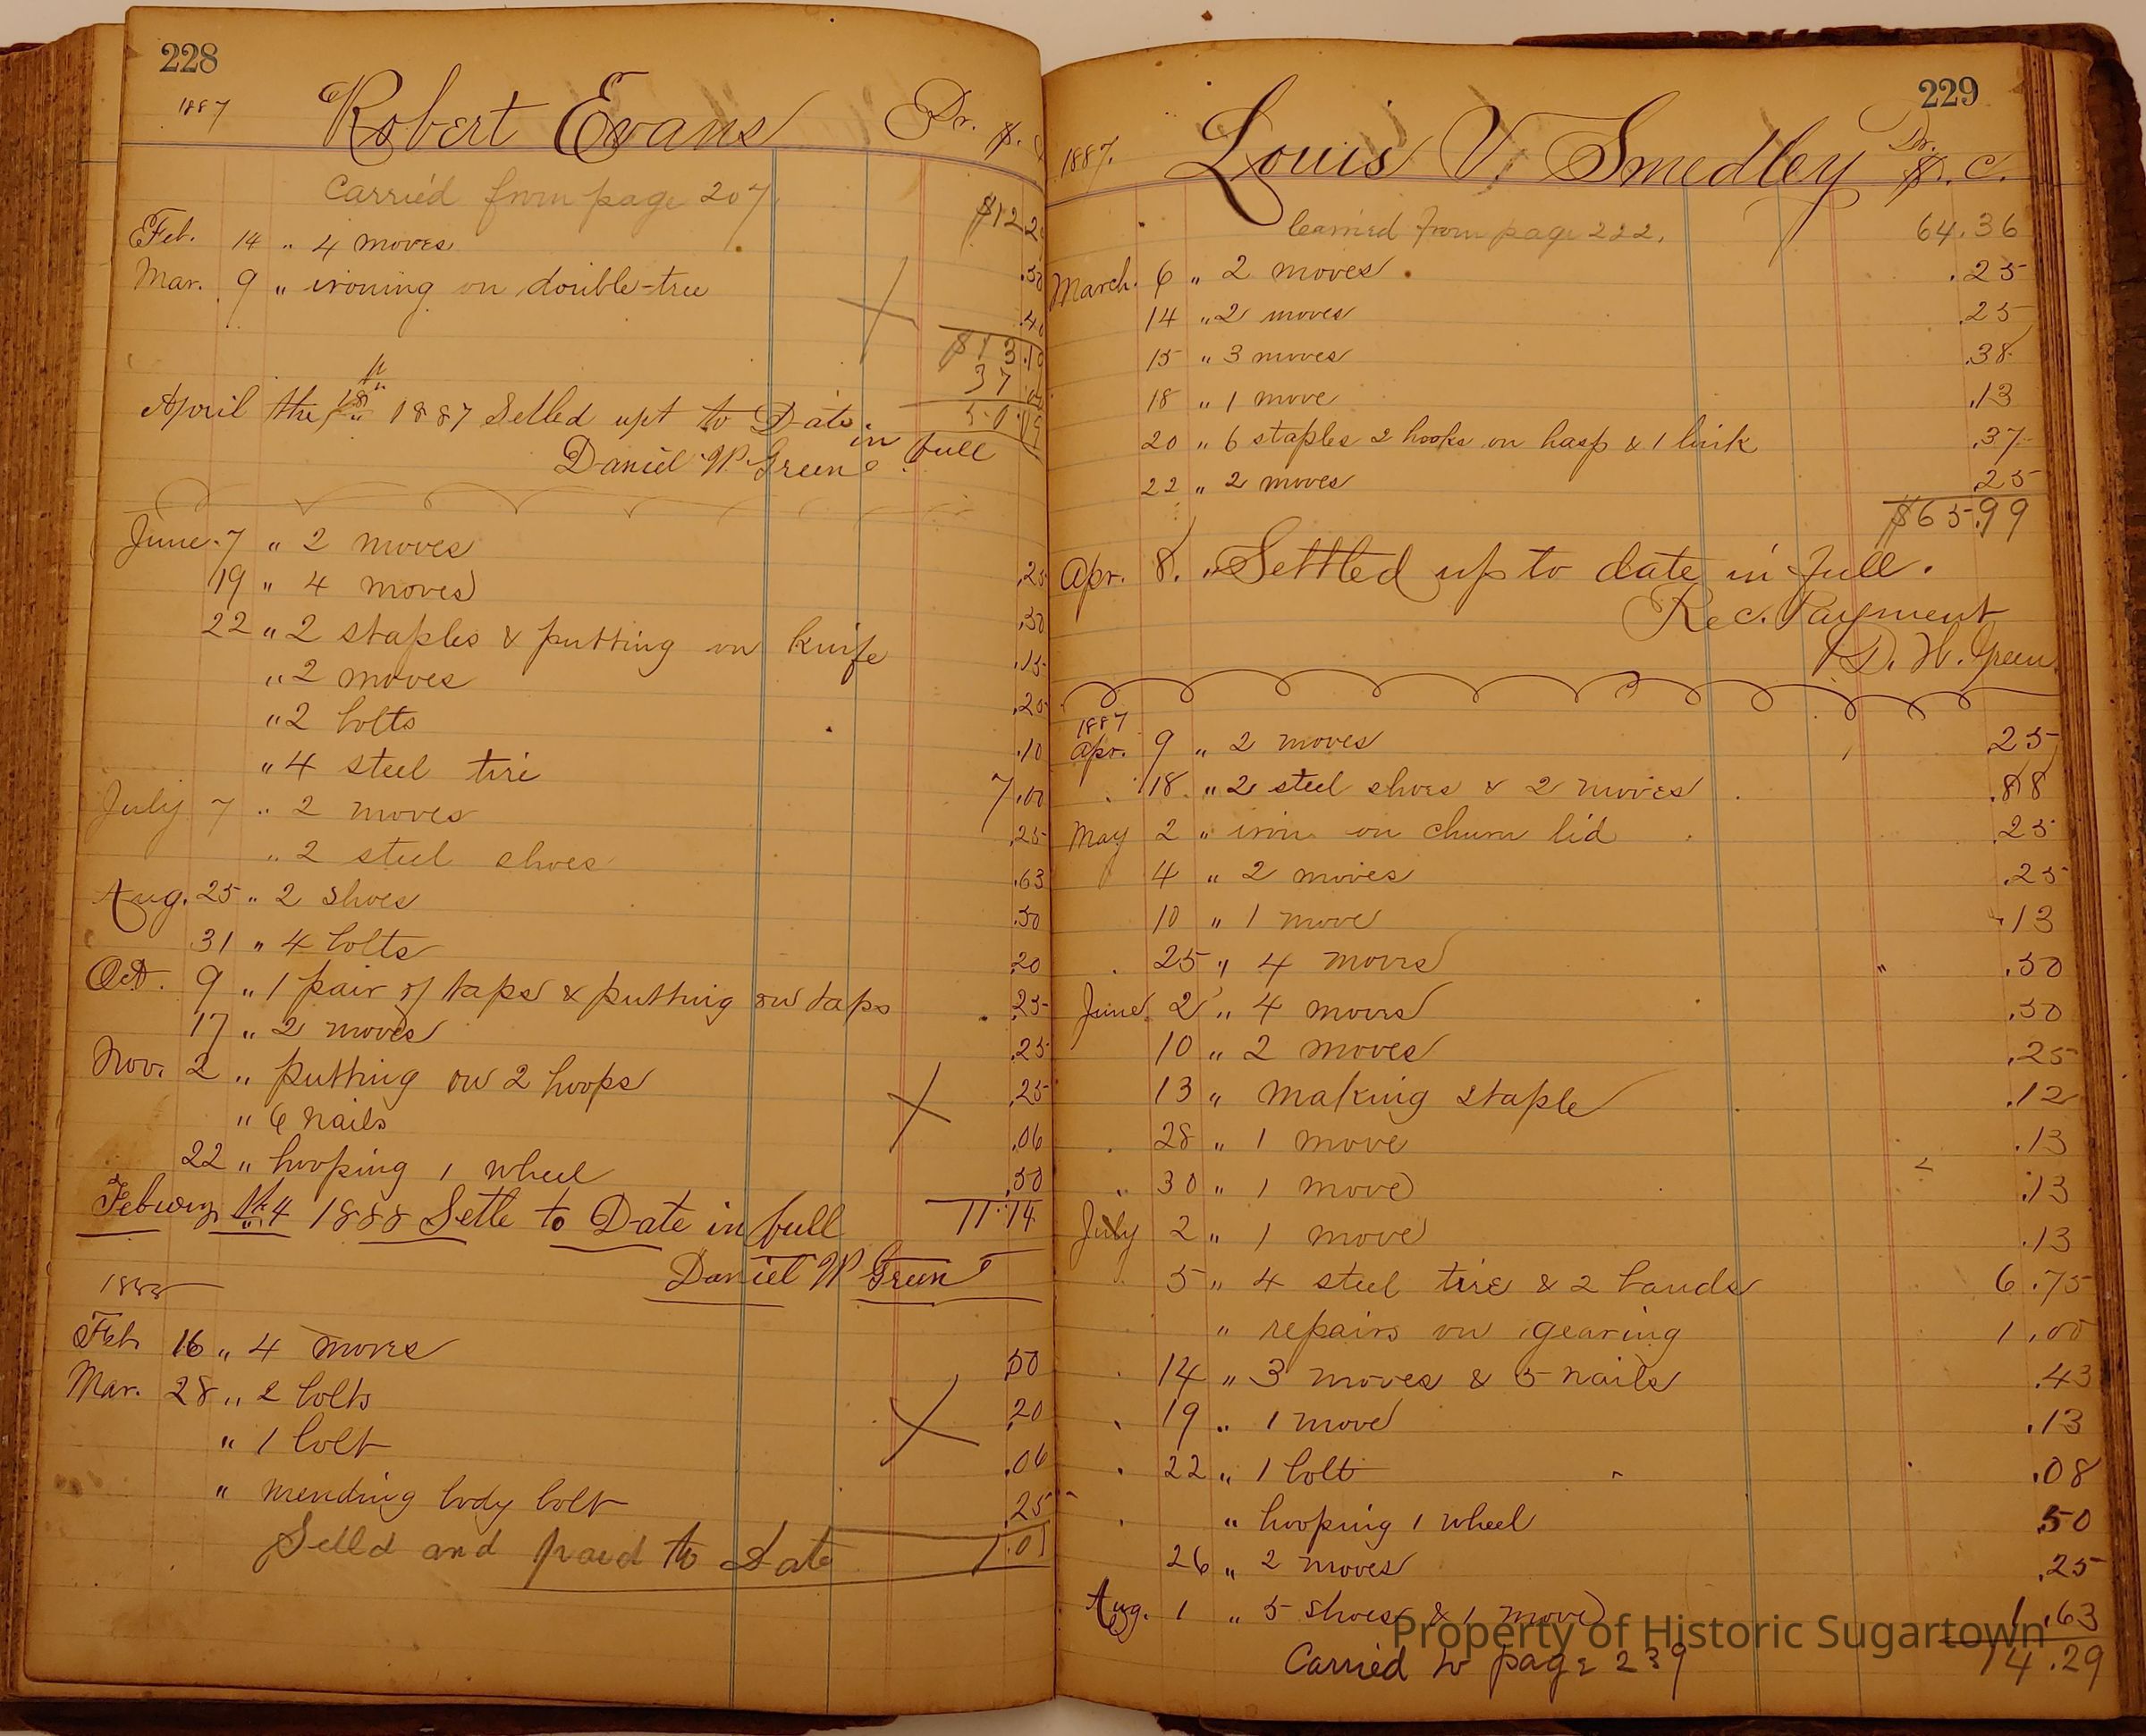 228
1887 Robert Evans Dr. $.
Carried from page 207. $12.2
Feb. 14 " 4 moves .50
Mar. 9 " ironing on double-tree .40
$13.10
37
April the 18th 1887 Setled upt to Date in full 50.19
Daniel W Green
June 7 " 2 moves .25
19 " 4 moves .50
22 " 2 staples & putting on knife .15
" 2 moves .20
" 2 bolts .10
" 4 steel tire 7.00
July 7 " 2 moves .25
" 2 steel shoes .63
Aug. 25 " 2 shoes .50
31 " 4 bolts .20
Oct. 9 " 1 pair of taps & putting on taps .25
17 " 2 moves .25
Nov. 2 " putting on 2 hoops .25
" 6 nails .06
22 " hooping 1 wheel .50
11.14
the 4 1888 Setle to Date in full
Daniel W Green
1888
Feb 16 " 4 moves 50
Mar. 28 " 2 bolts .20
" 1 bolt .06
" mending body bolt .25
Setled and paid to Date 1.01
229
1887. Louis V. Smedley Dr. $. c.
Carried from page 222. 64.36
March. 6 " 2 moves .25
14 " 2 moves .25
15 " 3 moves .38
18 " 1 move .13
20 " 6 staples 2 hooks on hasp & 1 link .37
22 " 2 moves .25
$65.99
Apr. 8. " Settled up to date in full.
Rec. Payment
D. W. Green
1887
Apr. 9 " 2 moves .25
18 " 2 steel shoes & 2 moves .88
May 2 " iron on churn lid .25
4 " 2 moves .25
10 " 1 move .13
25 " 4 moves .50
June 2 " 4 moves .50
10 " 2 moves .25
13 " making staple .12
28 " 1 move .13
" 30 " 1 move .13
July 2 " 1 move .13
5 " 4 steel tire & 2 bands 6.75
" repairs on gearing 1.00
14 " 3 moves & 5 nails .43
19 " 1 move .13
22 " 1 bolt .08
" hooping 1 wheel .50
26 " 2 moves .25
Aug. 1 " 5 shoes & 1 move 1.63
Carried to page 239 14.29
Property of Historic Sugartown